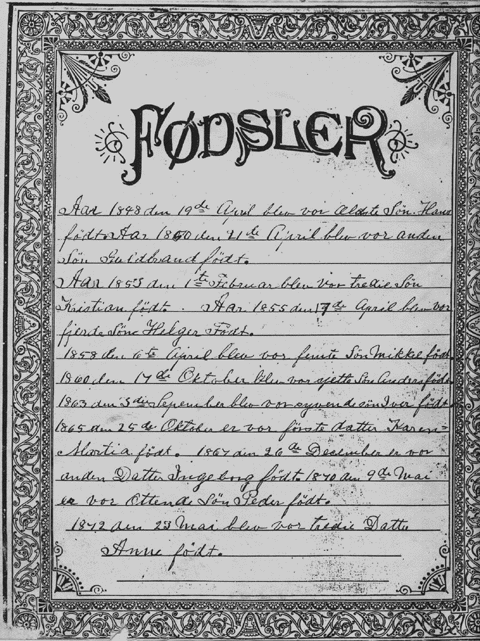 FØDSLER
Aar 1848 den 19de April blev vor Ældste Søn Hans
født. Aar 1850 den 21de April blev vor anden
Søn Guldbrand født.
Aar 1853 den 1st Februar blev vor tredie Søn
Kristian født. Aar 1855 den 17de April blev vor
fjerde Søn Helger Født.
1858 den 6te April blev vor femte Søn Mikkel født
1860 den 17de Oktober blev vor sjette Søn Andreas født
1863 den 3de September blev vor syvende søn Iver født
1865 den 25de Oktober er vor første datter Karen
Martia født. 1867 den 26de December er vor
anden Datter Ingeborg født. 1870 den 9de Mai
er vor Ottende Søn Peder født.
1872 den 23 Mai blev vor tredie Datte
Anne født.